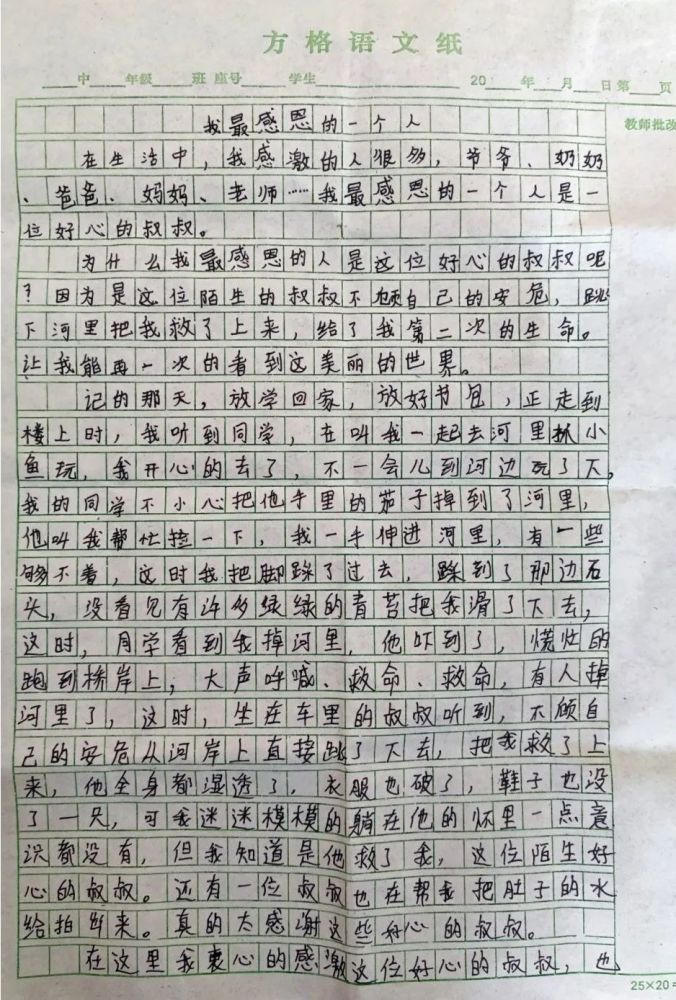 方格语文纸
中 年级 班 座号 学生 20 年 月 日 第 页
教师批改
我最感恩的一个人
在生活中，我感激的人很多，爷爷、奶奶
、爸爸、妈妈、老师……我最感恩的一个人是一
位好心的叔叔。
为什么我最感恩的人是这位好心的叔叔呢
？因为是这位陌生的叔叔不顾自己的安危，跳
下河里把我救了上来，给了我第二次的生命。
让我能再一次的看到这美丽的世界。
记的那天，放学回家，放好书包，正走到
楼上时，我听到同学，在叫我一起去河里抓小
鱼玩，我开心的去了，不一会儿到河边玩了下，
我的同学不小心把他手里的茄子掉到了河里，
他叫我帮忙捡一下，我一手伸进河里，有一些
够不着，这时我把脚踩了过去，踩到了那边石
头，没看见有许多绿绿的青苔把我滑了下去，
这时，同学看到我掉河里，他吓到了，慌忙的
跑到桥岸上，大声呼喊、救命、救命，有人掉
河里了，这时，坐在车里的叔叔听到，不顾自
己的安危从河岸上直接跳了下去，把我救了上
来，他全身都湿透了，衣服也破了，鞋子也没
了一只，可我迷迷模模的躺在他的怀里一点意
识都没有，但我知道是他救了我，这位陌生好
心的叔叔。还有一位叔叔也在帮我把肚子的水
给拍出来。真的太感谢这些好心的叔叔。
在这里我衷心的感激这位好心的叔叔，也
25×20=